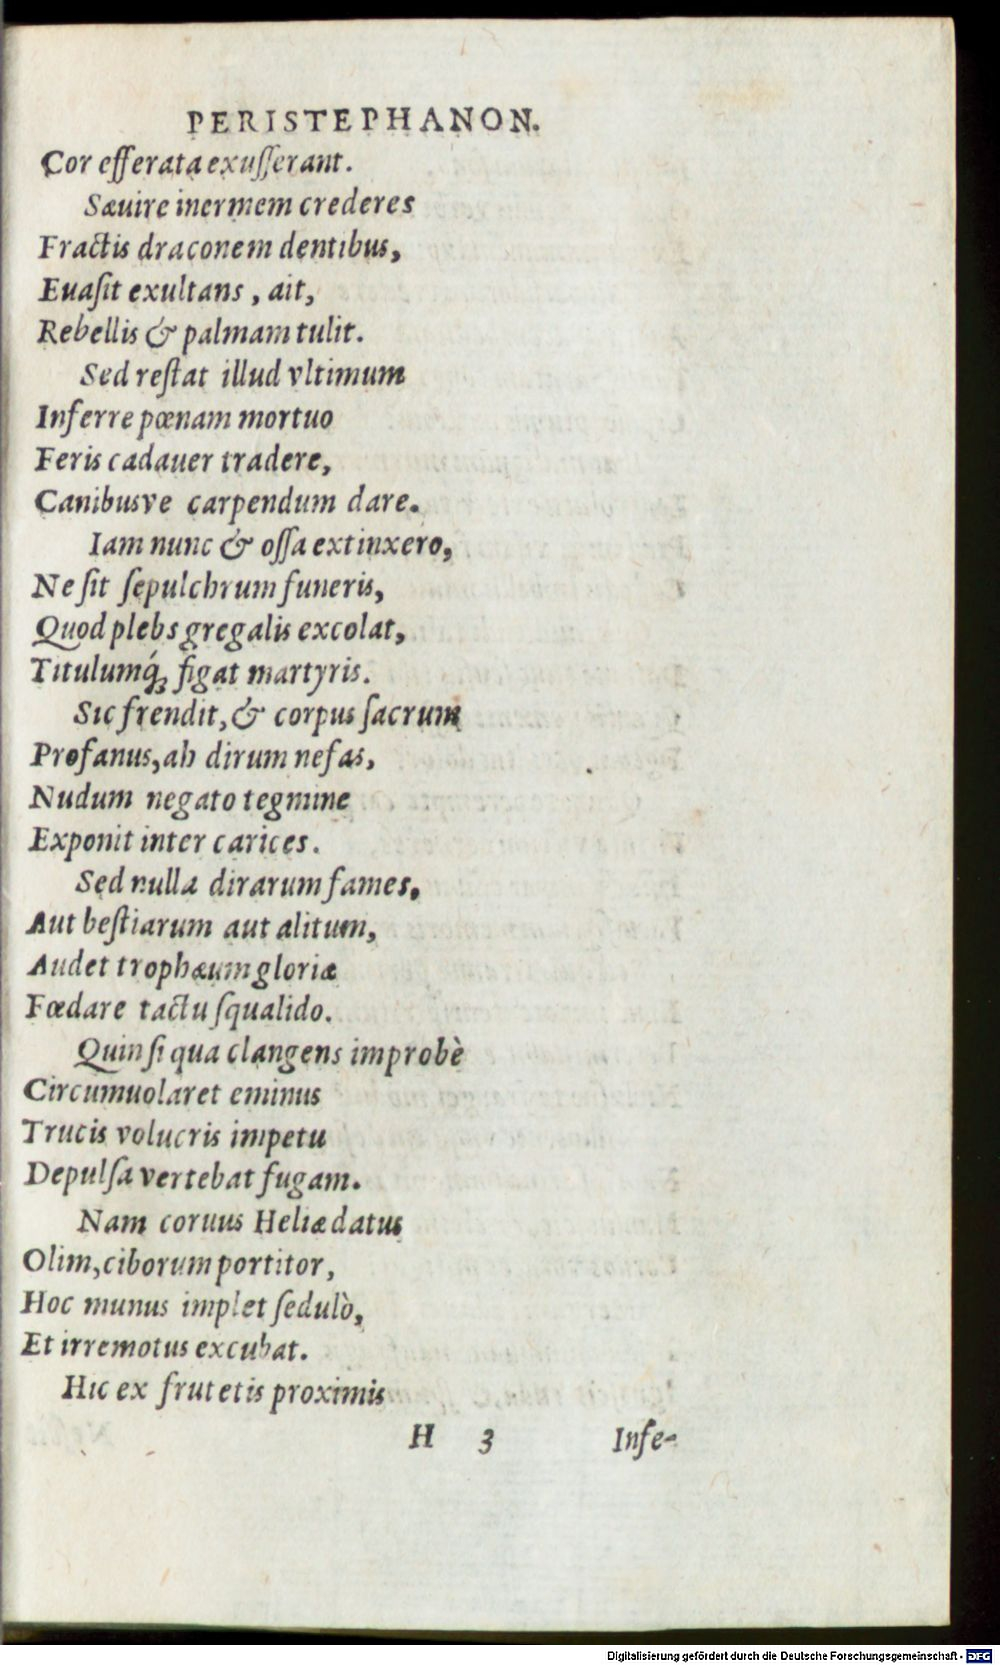 PERISTEPHANON.
Cor efferata exuſſerant.
Sæuire inermem crederes
Fractis draconem dentibus,
Euaſit exultans, ait,
Rebellis & palmam tulit.
Sed reſtat illud vltimum
Inferre pœnam mortuo
Feris cadauer tradere,
Canibusve carpendum dare.
Iam nunc & oſſa extinxero,
Ne ſit ſepulchrum funeris,
Quod plebs gregalis excolat,
Titulumq́ꝫ figat martyris.
Sic frendit, & corpus ſacrum
Profanus, ah dirum nefas,
Nudum negato tegmine
Exponit inter carices.
Sed nulla dirarum fames,
Aut beſtiarum aut alitum,
Audet trophæum gloriæ
Fœdare tactu ſqualido.
Quin ſi qua clangens improbè
Circumuolaret eminus
Trucis volucris impetu
Depulſa vertebat fugam.
Nam coruus Heliæ datus
Olim, ciborum portitor,
Hoc munus implet ſedulò,
Et irremotus excubat.
Hic ex frutetis proximis
H 3 Infe-
Digitalisierung gefördert durch die Deutsche Forschungsgemeinschaft - DFG